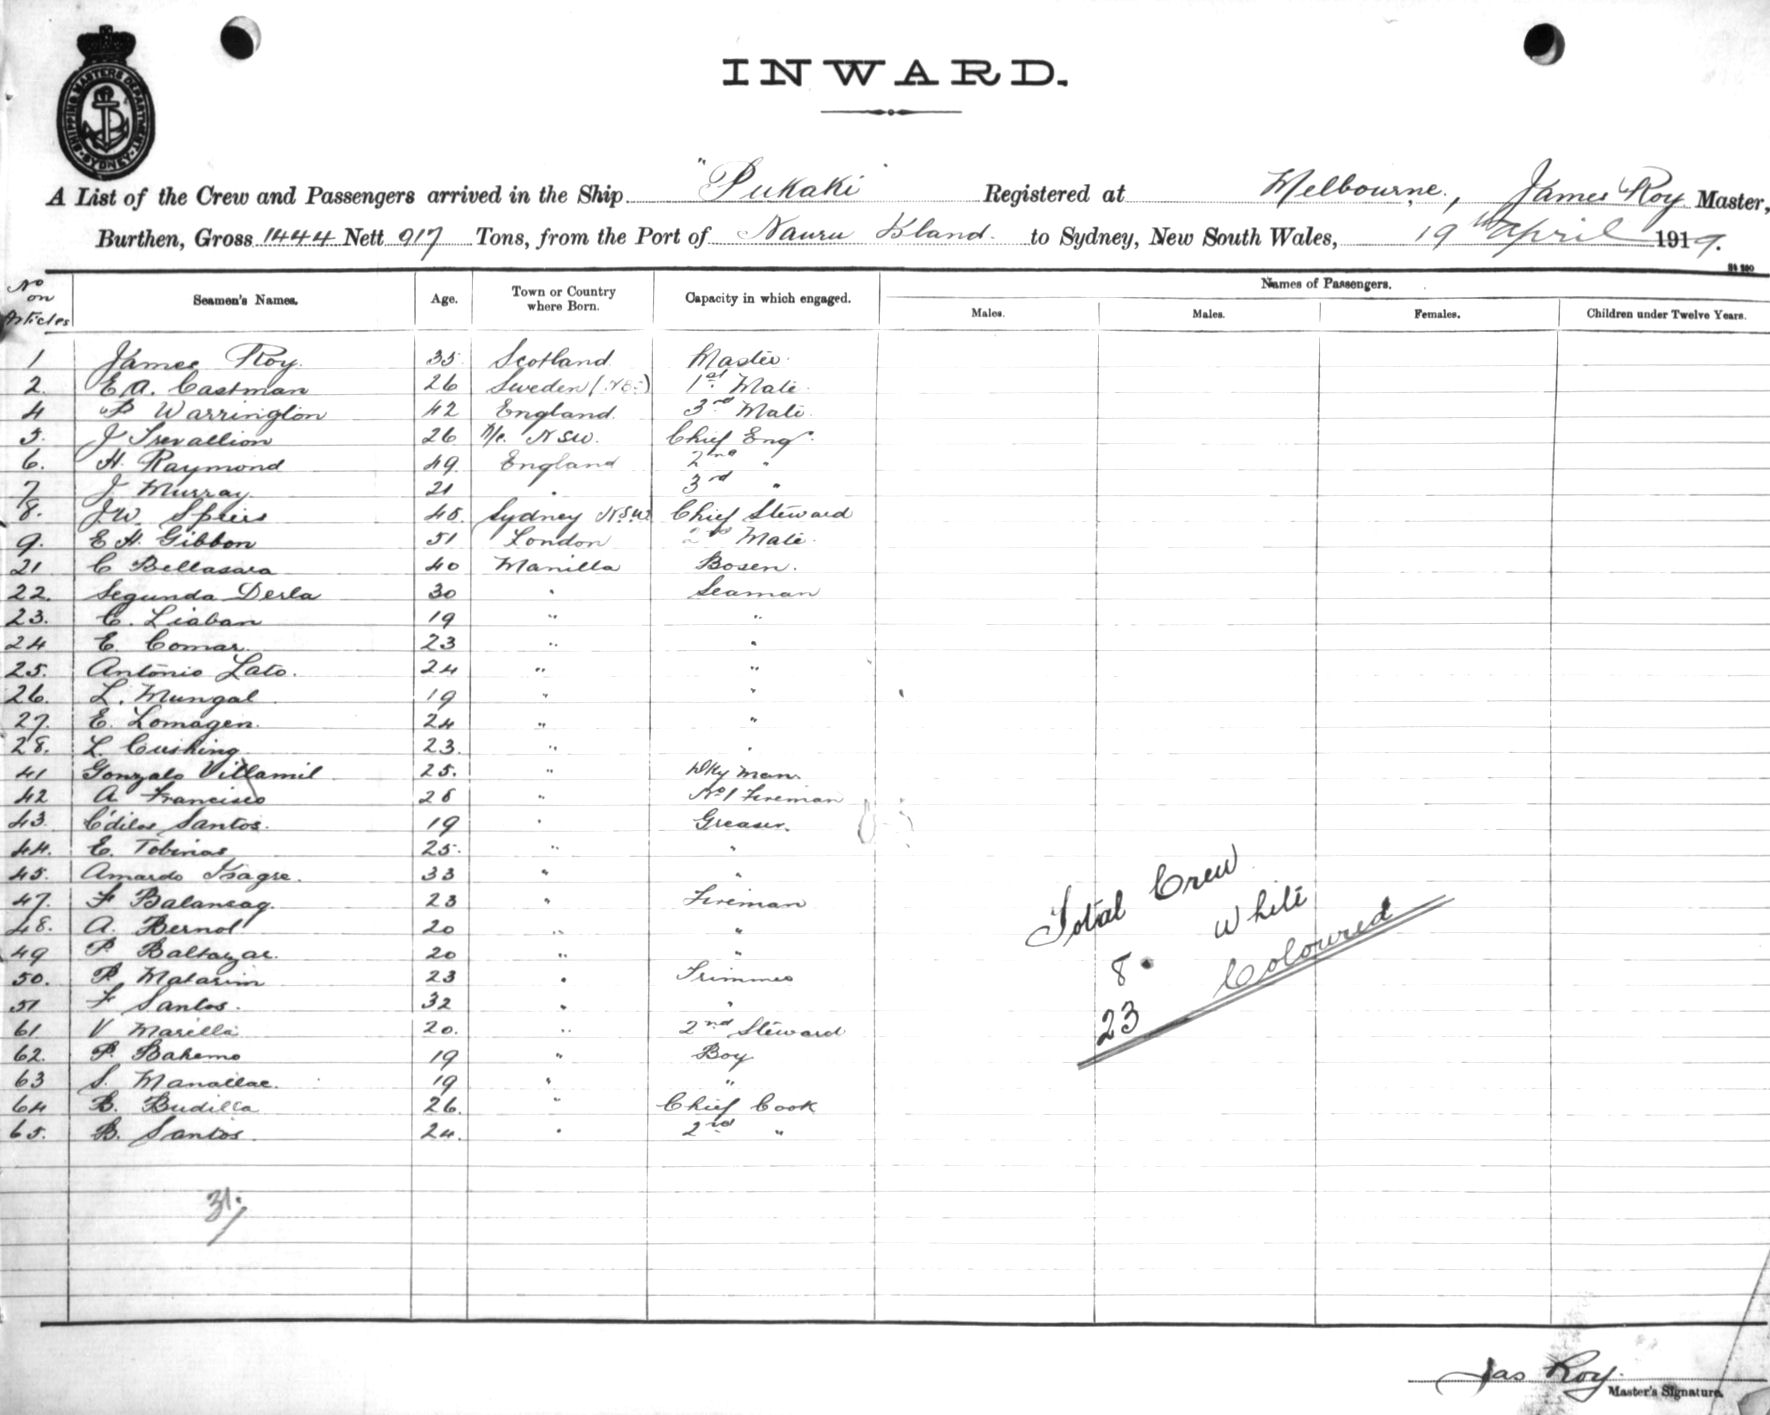 SHIPPING MASTERS DEPARTMENT SYDNEY
INWARD.
A List of the Crew and Passengers arrived in the Ship "Pukaki" Registered at Melbourne, James Roy Master,
Burthen, Gross 1444 Nett 917 Tons, from the Port of Nauru Island. to Sydney, New South Wales, 19th April 1919.
No on Articles Seamen's Names. Age. Town or Country where Born. Capacity in which engaged. Names of Passengers.
Males. Males. Females. Children under Twelve Years.
1 James Roy. 35 Scotland Master
2. E. A. Castman 26 Sweden 1st Mate
4 P Warrington 42 England. 3rd Mate.
5. J Trevallion 26 N/c. NSW. Chief Engr.
6. H. Raymond 49 England 2nd "
7 J Murray 21 " 3rd "
8. J W. Speirs 45. Sydney N.S.W. Chief Steward
9. E H. Gibbon 51 London 2nd Mate.
21 C Bellasara 40 Manilla Bosen.
22. Segunda Derla 30 " Seaman
23. C. Liaban 19 " "
24 E. Comar 23 " "
25. Antonio Lato. 24 " "
26. L. Mungal 19 " "
27. E. Lomagen. 24 " "
28. L. Cushing 23. " "
41 Gonzalo Villamil 25. " Dky Man
42 A Francisco 28 " No 1 Fireman
43. Santos. 19 " Greaser.
44. E. Tobinas 25. " "
45. Amardo 33 " "
47. F Balancag. 23 " Fireman
48. A. Bernol 20 " "
49 P Baltazar. 20 " "
50. P. Matarim 23 " Trimmer
51 F Santos. 32 " "
61 V Marilla 20. " 2nd Steward
62. P. Bahemo 19 " Boy
63 S. Manallac. 19 " "
64 B. Budilla 26. " Chief Cook
65. B. Santos. 24. " 2nd "
Total Crew
8 White
23 Coloured
31
Jas Roy.
Master's Signature.